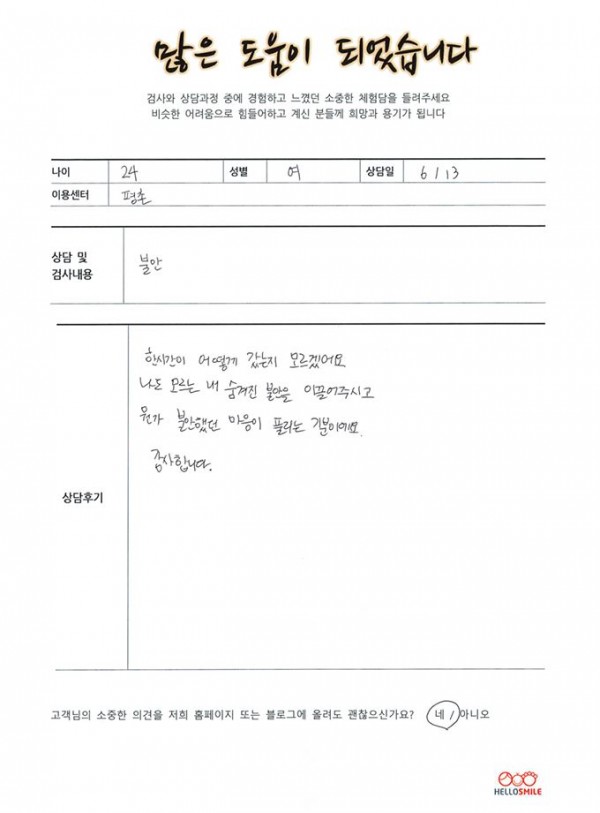 많은 도움이 되었습니다
검사와 상담과정 중에 경험하고 느꼈던 소중한 체험담을 들려주세요
비슷한 어려움으로 힘들어하고 계신 분들께 희망과 용기가 됩니다
나이 24 성별 여 상담일 6 / 13
이용센터 평촌
상담 및
검사내용
불안
한시간이 어떻게 갔는지 모르겠어요
나도 모르는 내 숨겨진 불안을 이끌어주시고
뭔가 불안했던 마음이 풀리는 기분이에요.
감사합니다.
상담후기
고객님의 소중한 의견을 저희 홈페이지 또는 블로그에 올려도 괜찮으신가요? 네 / 아니오
HELLOSMILE